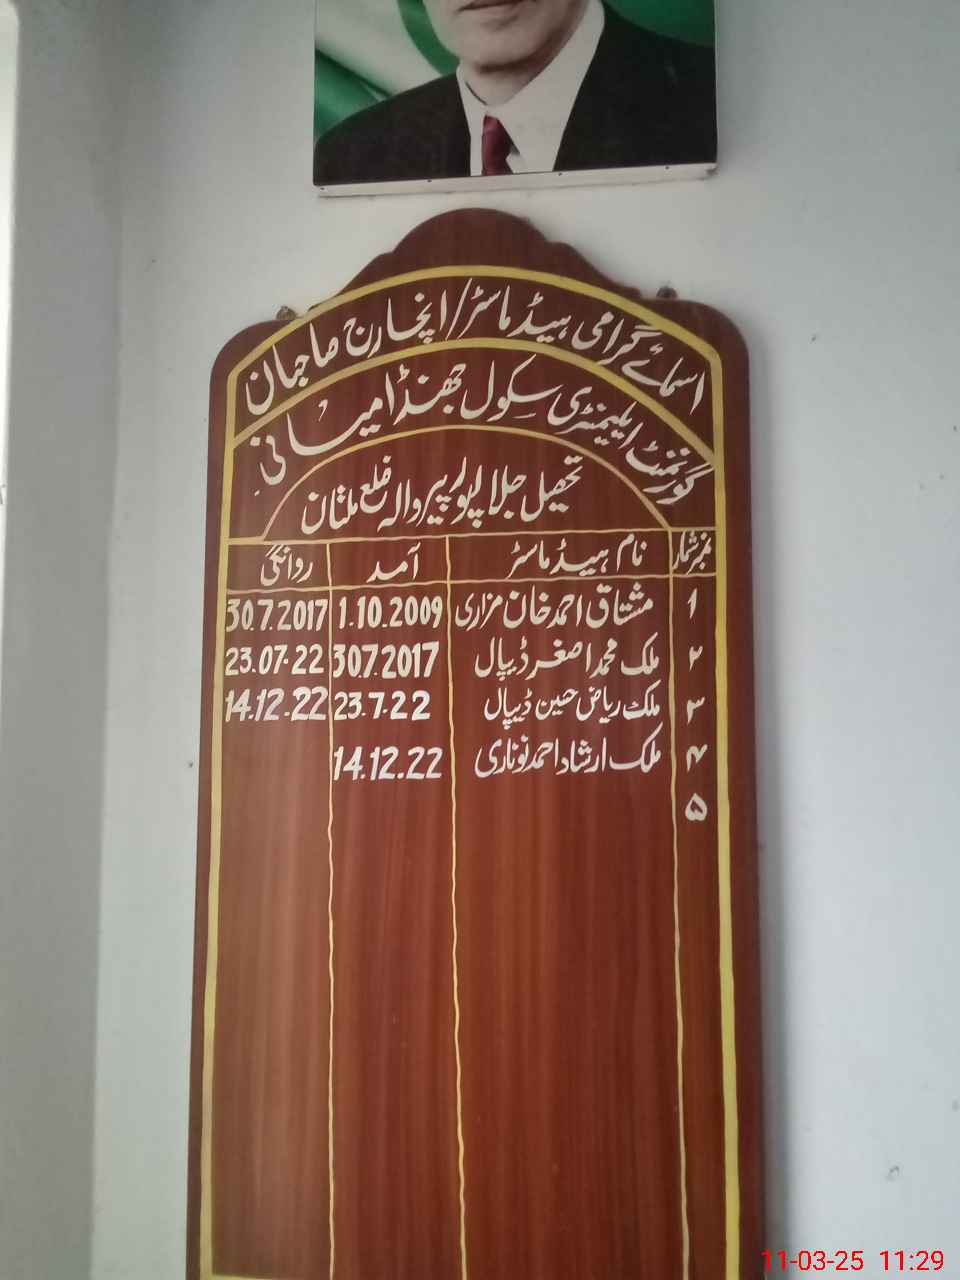 اسمائے گرامی ہیڈ ماسٹر/انچارج صاحبان
گورنمنٹ ایلیمنٹری سکول جھنڈا میانی
تحصیل جلالپور پیر والہ ضلع ملتان
نمبر شمار نام ہیڈ ماسٹر آمد روانگی
1 مشتاق احمد خان مزاری 1.10.2009 30.7.2017
۲ ملک محمد اصغر ڈیپال 30.7.2017 23.07.22
۳ ملک ریاض حسین ڈیپال 23.7.22 14.12.22
۴ ملک ارشاد احمد نوناری 14.12.22
۵
11-03-25 11:29